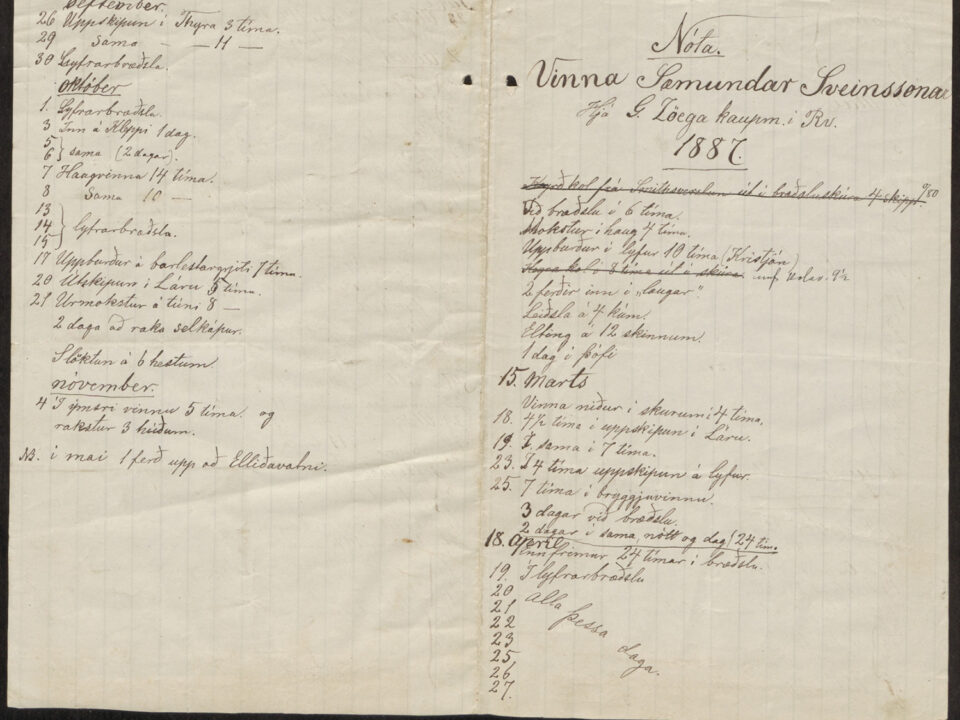 september.
26 Uppskipun í Thyra 3 tíma.
29 Sama — 11 —
30 Lyfrarbræðsla.
október
1. Lyfrarbræðsla.
3 Inn á Kleppi 1 dag.
5
6 } sama (2 dagar).
7 Haugvinna 14 tíma.
8 Sama 10 —
13
14 } lyfrarbræðsla.
15
17 Uppburður á barlestargrjóti 7 tíma.
20 Útskipun í Láru 5 tíma.
21 Úrmokstur á túni 8 —
2 daga að raka selkápur.
Slöktun á 6 hestum
november.
4 Í ýmsri vinnu 5 tíma. og
rakstur 3 húðum.
NB. í mai 1 ferð upp að Elliðavatni.
Nóta.
Vinna Sæmundar Sveinssonar
Hjá G. Zöega kaupm. í Rv.
1887.
Keyrð kol frá Smithsverslun út í bræðsluskúra 4 skipp. 0/80
Við bræðslu í 6 tíma.
Mokstur í haug 4 tíma.
Uppburður í lyfur 10 tíma (Kristján)
Keyra kol í 8 tíma út í skúra
2 ferðir inn í „laugar"
Leiðsla á 4 kúm.
Elting á 12 skinnum.
1 dag í þófi
15. Marts
Vinna niður í skurum í 4 tíma.
18. 4½ tíma í uppskipun í Láru.
19. Í sama í 7 tíma.
23. Í 4 tíma uppskipun á lyfur.
25. 7 tíma í bryggjuvinnu.
3 dagar við bræðslu.
2 dagar í sama, nótt og dag (24 tím.
18. April
Ennfremur 24 tímar í bræðslu.
19. Í lyfrarbræðslu
20 alla þessa daga.
21
22
23
25.
26.
27.